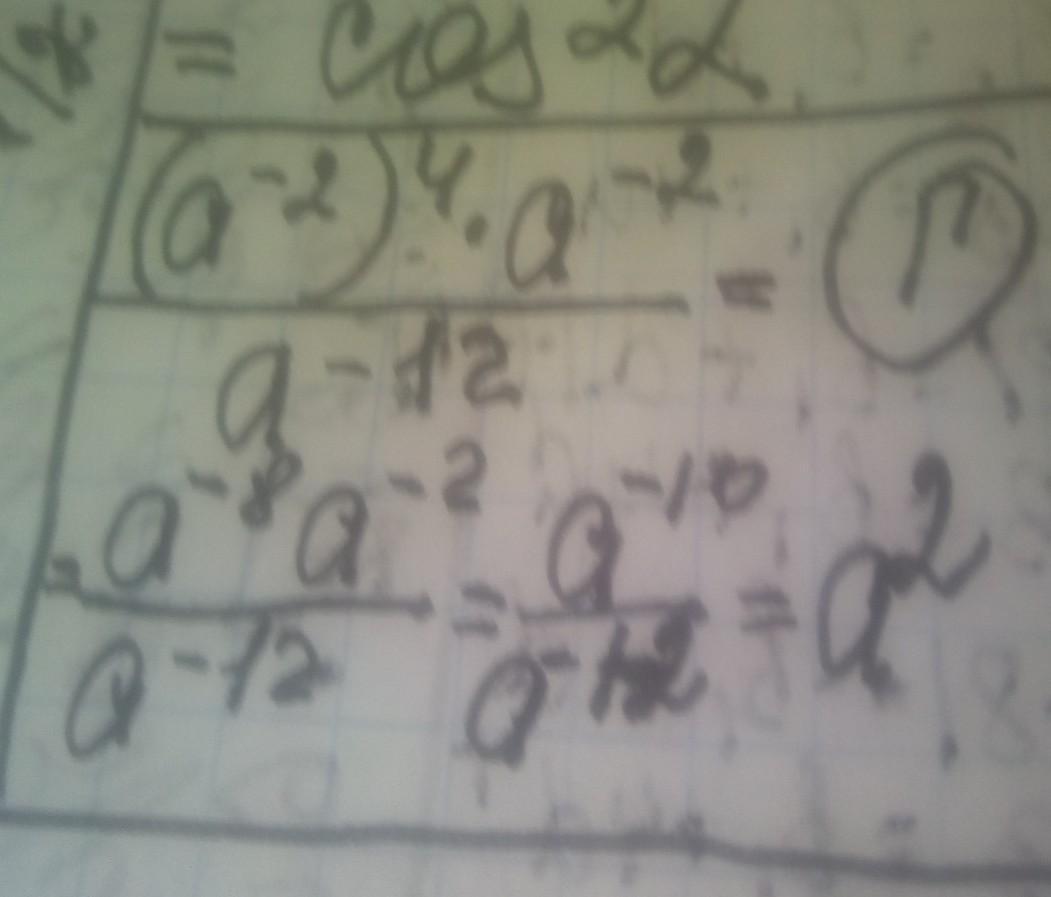 = cos 2α
(a⁻²)⁴ · a⁻² / a⁻¹² = Г
= a⁻⁸a⁻² / a⁻¹² = a⁻¹⁰ / a⁻¹² = a²